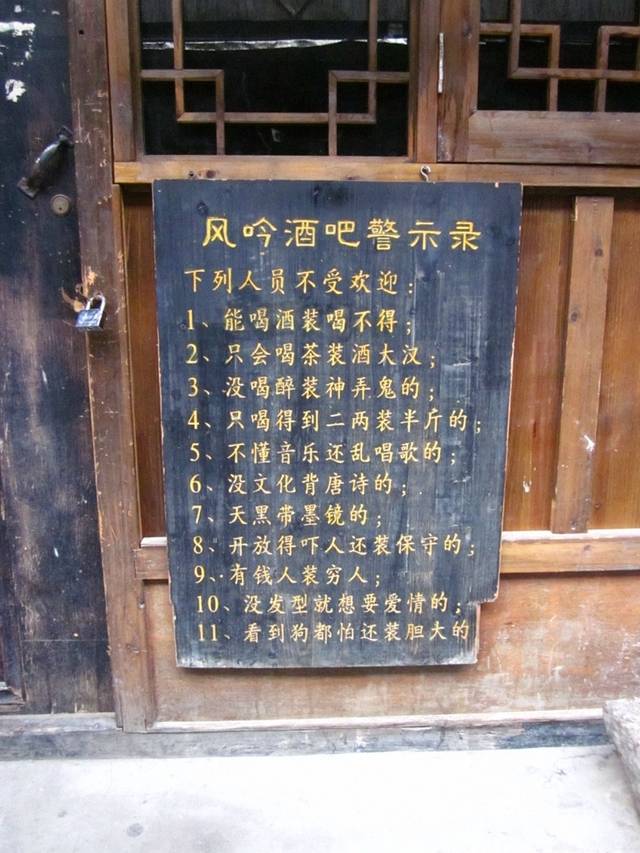 风吟酒吧警示录
下列人员不受欢迎：
1、能喝酒装喝不得；
2、只会喝茶装酒大汉；
3、没喝醉装神弄鬼的；
4、只喝得到二两装半斤的；
5、不懂音乐还乱唱歌的；
6、没文化背唐诗的；
7、天黑带墨镜的；
8、开放得吓人还装保守的；
9、有钱人装穷人；
10、没发型就想要爱情的；
11、看到狗都怕还装胆大的